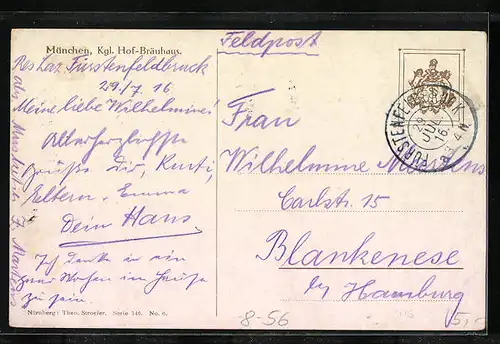 München, Kgl. Hof-Bräuhaus.
Res Laz Fürstenfeldbruck
29/7 16
Meine liebe Wilhelmine!
Allerherzlichste
Grüße Dir, Kurti,
Eltern, Emma
Dein Hans
Ich denke in ein
paar Wochen im Hause
zu sein.
Nürnberg: Theo. Stroefer. Serie 146. No. 6.
Feldpost
FÜRSTENFELDBRUCK
29
JUL
16
Frau
Wilhelmine
Carlstr. 15
Blankenese
by Hamburg
8-56
5,-